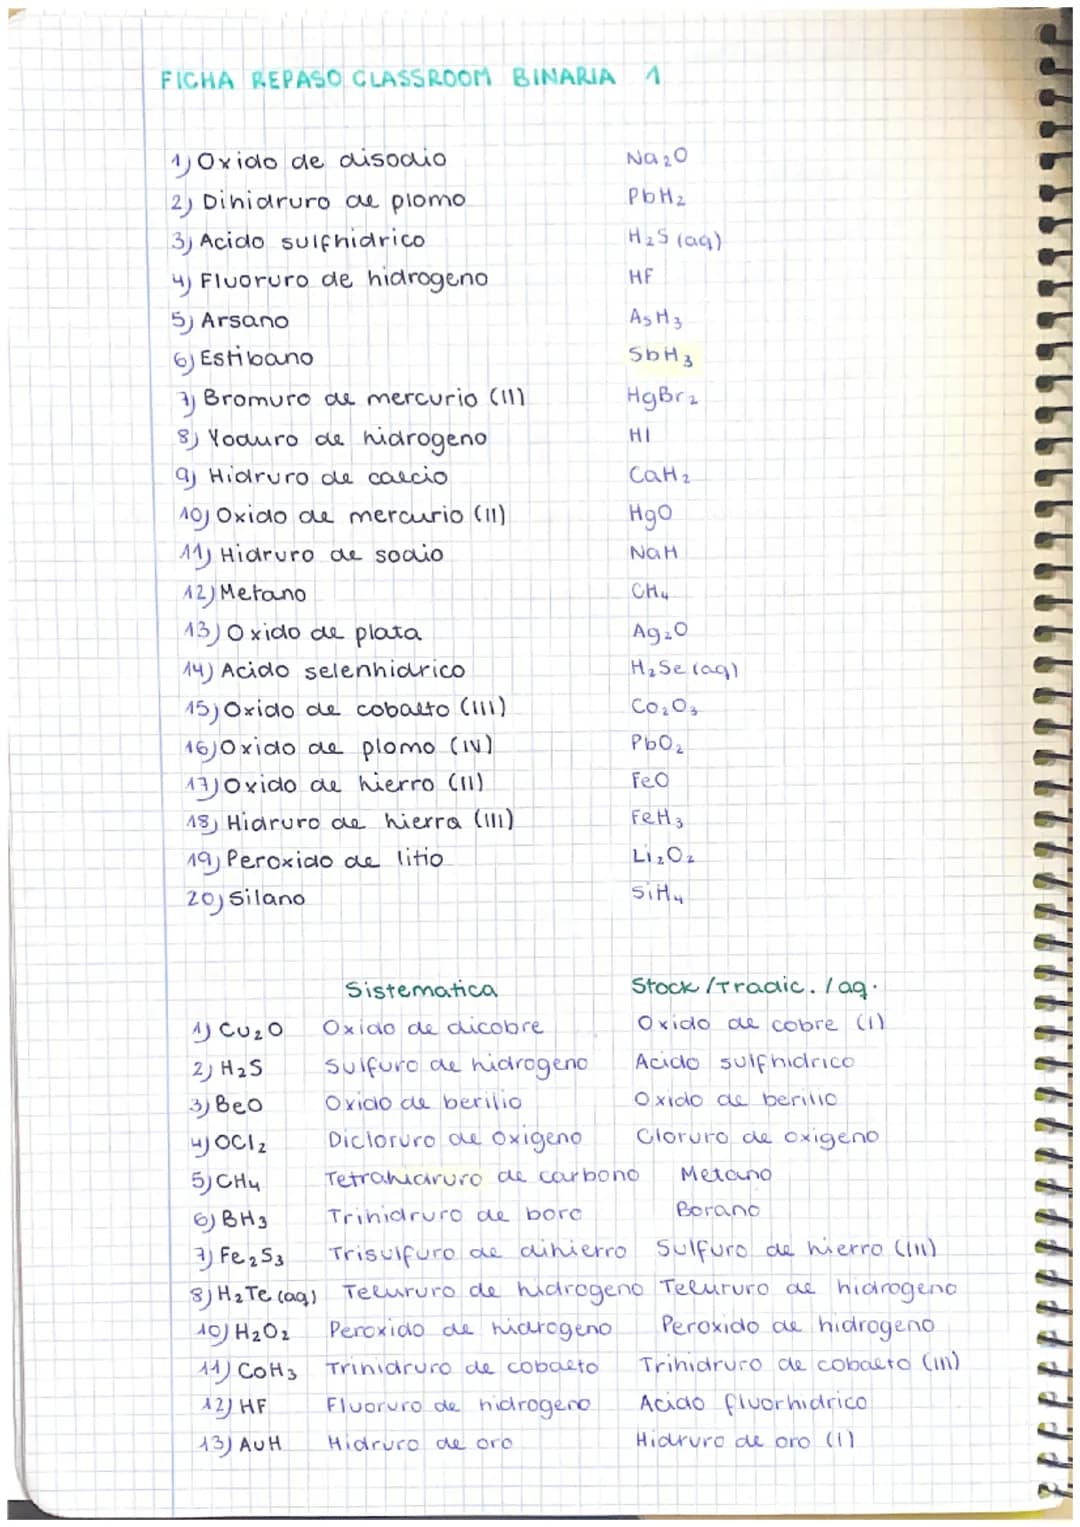 FICHA REPASO CLASSROOM BINARIA 1
1) Oxido de disodio Na₂O
2) Dihidruro de plomo PbH₂
3) Acido sulfhidrico H₂S (aq)
4) Fluoruro de hidrogeno HF
5) Arsano AsH₃
6) Estibano SbH₃
7) Bromuro de mercurio (II) HgBr₂
8) Yoduro de hidrogeno HI
9) Hidruro de calcio CaH₂
10) Oxido de mercurio (II) HgO
11) Hidruro de sodio NaH
12) Metano CH₄
13) Oxido de plata Ag₂O
14) Acido selenhidrico H₂Se (aq)
15) Oxido de cobalto (III) Co₂O₃
16) Oxido de plomo (IV) PbO₂
17) Oxido de hierro (II) FeO
18) Hidruro de hierra (III) FeH₃
19) Peroxido de litio Li₂O₂
20) Silano SiH₄
Sistematica Stock /Tradic. / aq.
1) Cu₂O Oxido de dicobre Oxido de cobre (I)
2) H₂S Sulfuro de hidrogeno Acido sulfhidrico
3) BeO Oxido de berilio Oxido de berilio
4) OCl₂ Dicloruro de oxigeno Cloruro de oxigeno
5) CH₄ Tetrahidruro de carbono Metano
6) BH₃ Trihidruro de boro Borano
7) Fe₂S₃ Trisulfuro de dihierro Sulfuro de hierro (III)
8) H₂Te (aq) Telururo de hidrogeno Telururo de hidrogeno
10) H₂O₂ Peroxido de hidrogeno Peroxido de hidrogeno
11) CoH₃ Trihidruro de cobalto Trihidruro de cobalto (III)
12) HF Fluoruro de hidrogeno Acido fluorhidrico
13) AuH Hidruro de oro Hidruro de oro (I)